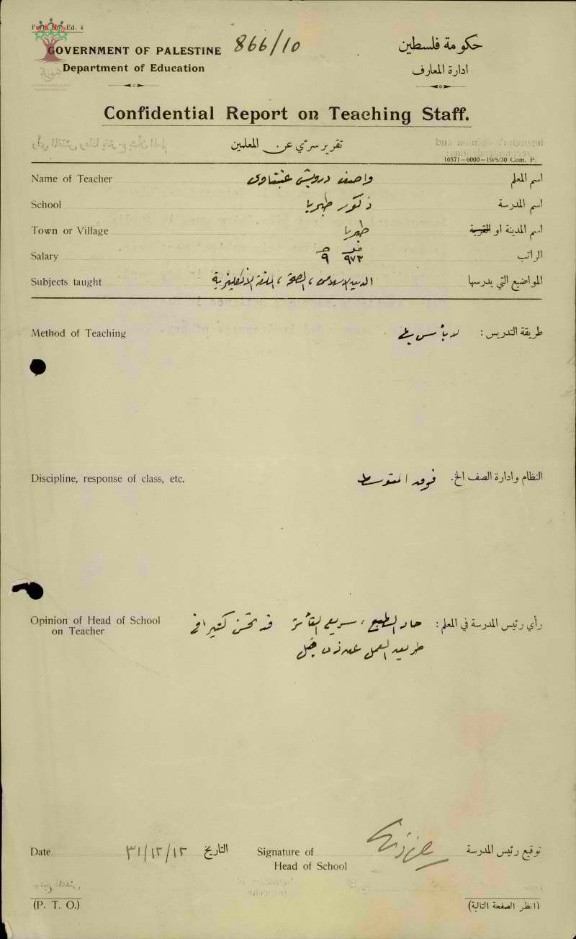 GOVERNMENT OF PALESTINE 866/10 حكومة فلسطين
Department of Education ادارة المعارف
Confidential Report on Teaching Staff.
تقرير سرّي عن المعلمين
16571—6000—19/5/30 Com. P.
Name of Teacher واصف درويش عنبتاوي اسم المعلم
School ذكور طبريا اسم المدرسة
Town or Village طبريا اسم المدينة او القرية
Salary ٩ ٩٧٣ الراتب
Subjects taught الدين الاسلامي، الصحة، اللغة الانكليزية المواضيع التي يدرسها
Method of Teaching لا بأس بها طريقة التدريس:
Discipline, response of class, etc. فوق المتوسط النظام وادارة الصف الخ.
Opinion of Head of School حاد الطبع، سريع التأثر قد تحسن كثيرا في رأي رئيس المدرسة في المعلم:
on Teacher طريقة العمل عن ذي قبل
Date ٣١/١٢/١٢ التاريخ Signature of توقيع رئيس المدرسة
Head of School
(P. T. O.) (انظر الصفحة التالية)